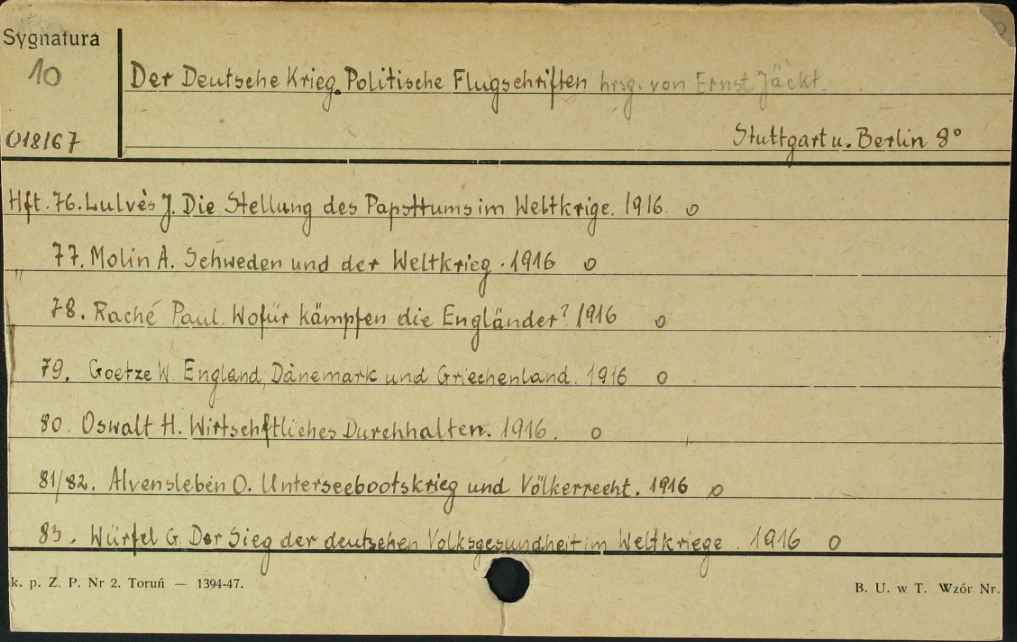 Sygnatura
10
018167
Der Deutsche Krieg. Politische Flugschriften hrsg. von Ernst Jäckt.
Stuttgart u. Berlin 8°
Hft. 76. Lulvès J. Die Stellung des Papsttums im Weltkrige. 1916 o
77. Molin A. Schweden und der Weltkrieg. 1916 o
78. Raché Paul. Wofür kämpfen die Engländer? 1916 o
79. Goetze W. England, Dänemark und Griechenland. 1916 o
80. Oswalt H. Wirtschftliches Durchhalten. 1916. o
81/82. Alvensleben O. Unterseebootskrieg und Völkerrecht. 1916 o
83. Würfel G. Der Sieg der deutschen Volksgesundheit im Weltkriege. 1916 o
k. p. Z. P. Nr 2. Toruń — 1394-47.
B. U. w T. Wzór Nr.